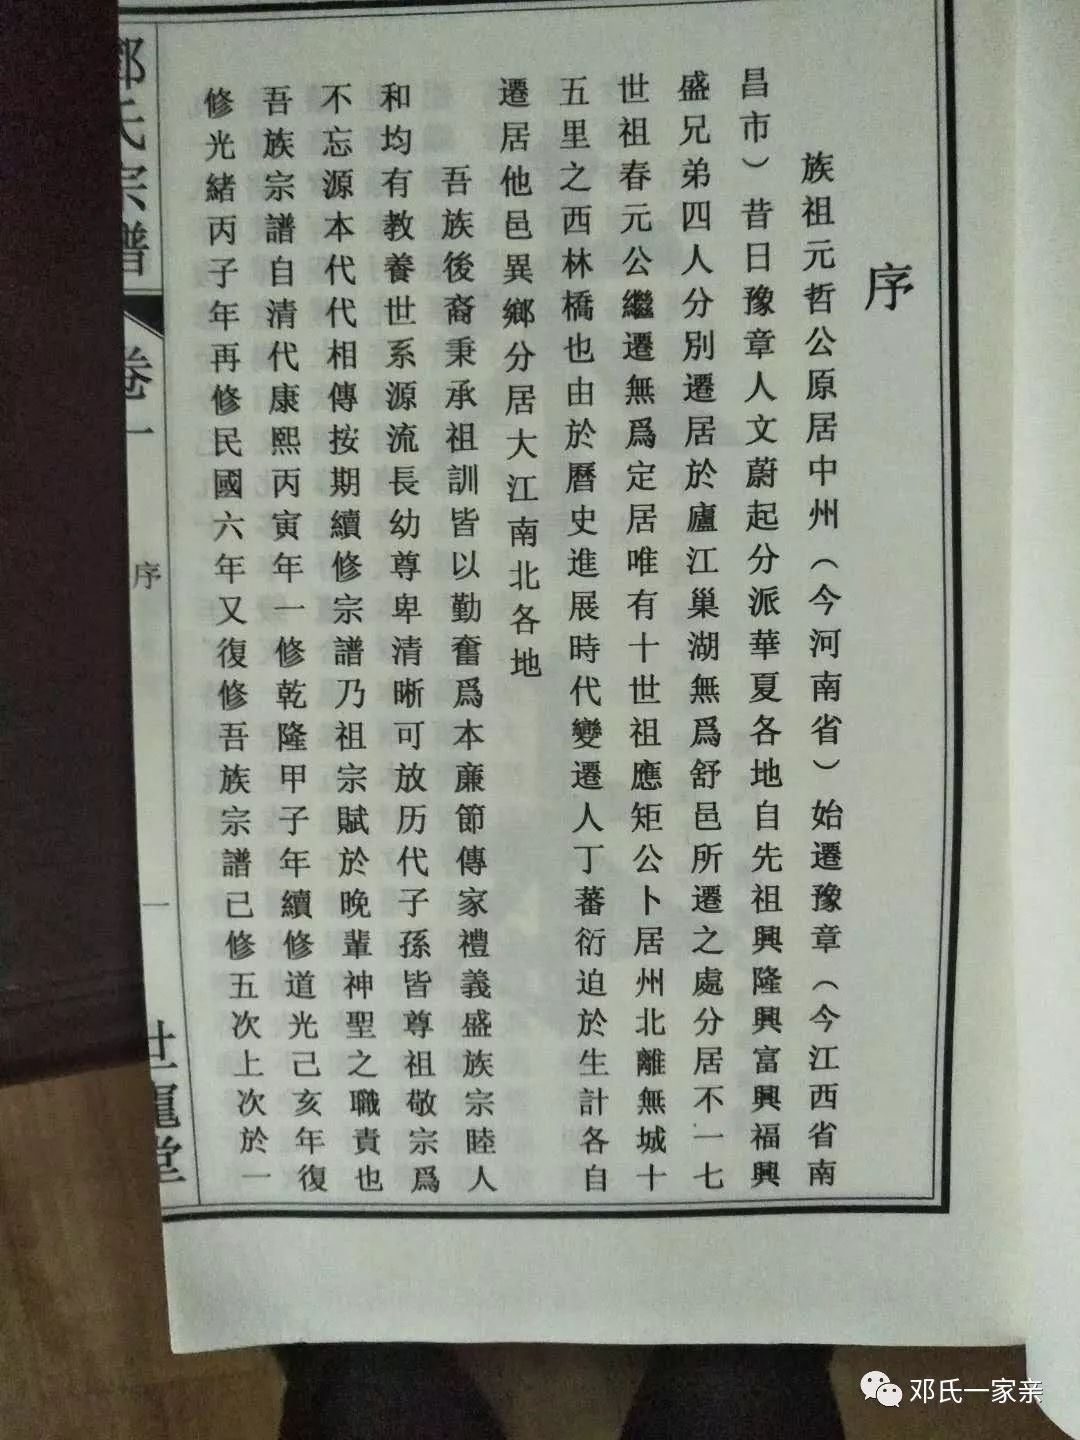 序
族祖元哲公原居中州（今河南省）始遷豫章（今江西省南
昌市）昔日豫章人文蔚起分派華夏各地自先祖興隆興富興福興
盛兄弟四人分別遷居於廬江巢湖無爲舒邑所遷之處分居不一七
世祖春元公繼遷無爲定居唯有十世祖應矩公卜居州北離無城十
五里之西林橋也由於曆史進展時代變遷人丁蕃衍迫於生計各自
遷居他邑異鄉分居大江南北各地
吾族後裔秉承祖訓皆以勤奮爲本廉節傳家禮義盛族宗睦人
和均有教養世系源流長幼尊卑清晰可放历代子孫皆尊祖敬宗爲
不忘源本代代相傳按期續修宗譜乃祖宗賦於晚輩神聖之職責也
吾族宗譜自清代康熙丙寅年一修乾隆甲子年續修道光己亥年復
修光緒丙子年再修民國六年又復修吾族宗譜已修五次上次於一
鄧氏宗譜
卷一
序
一
世
堂
邓氏一家亲